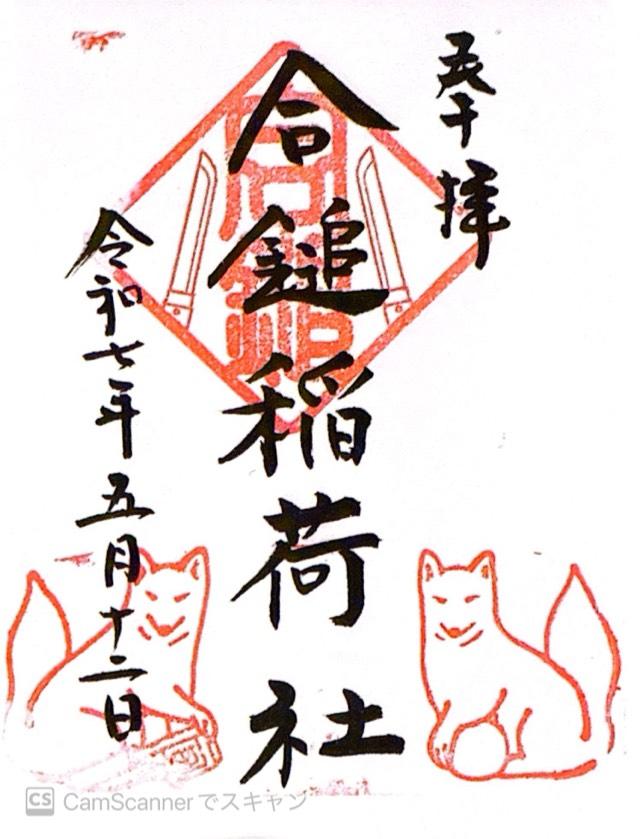 奉拝
合鎚稲荷社
令和七年五月十二日
CS CamScannerでスキャン